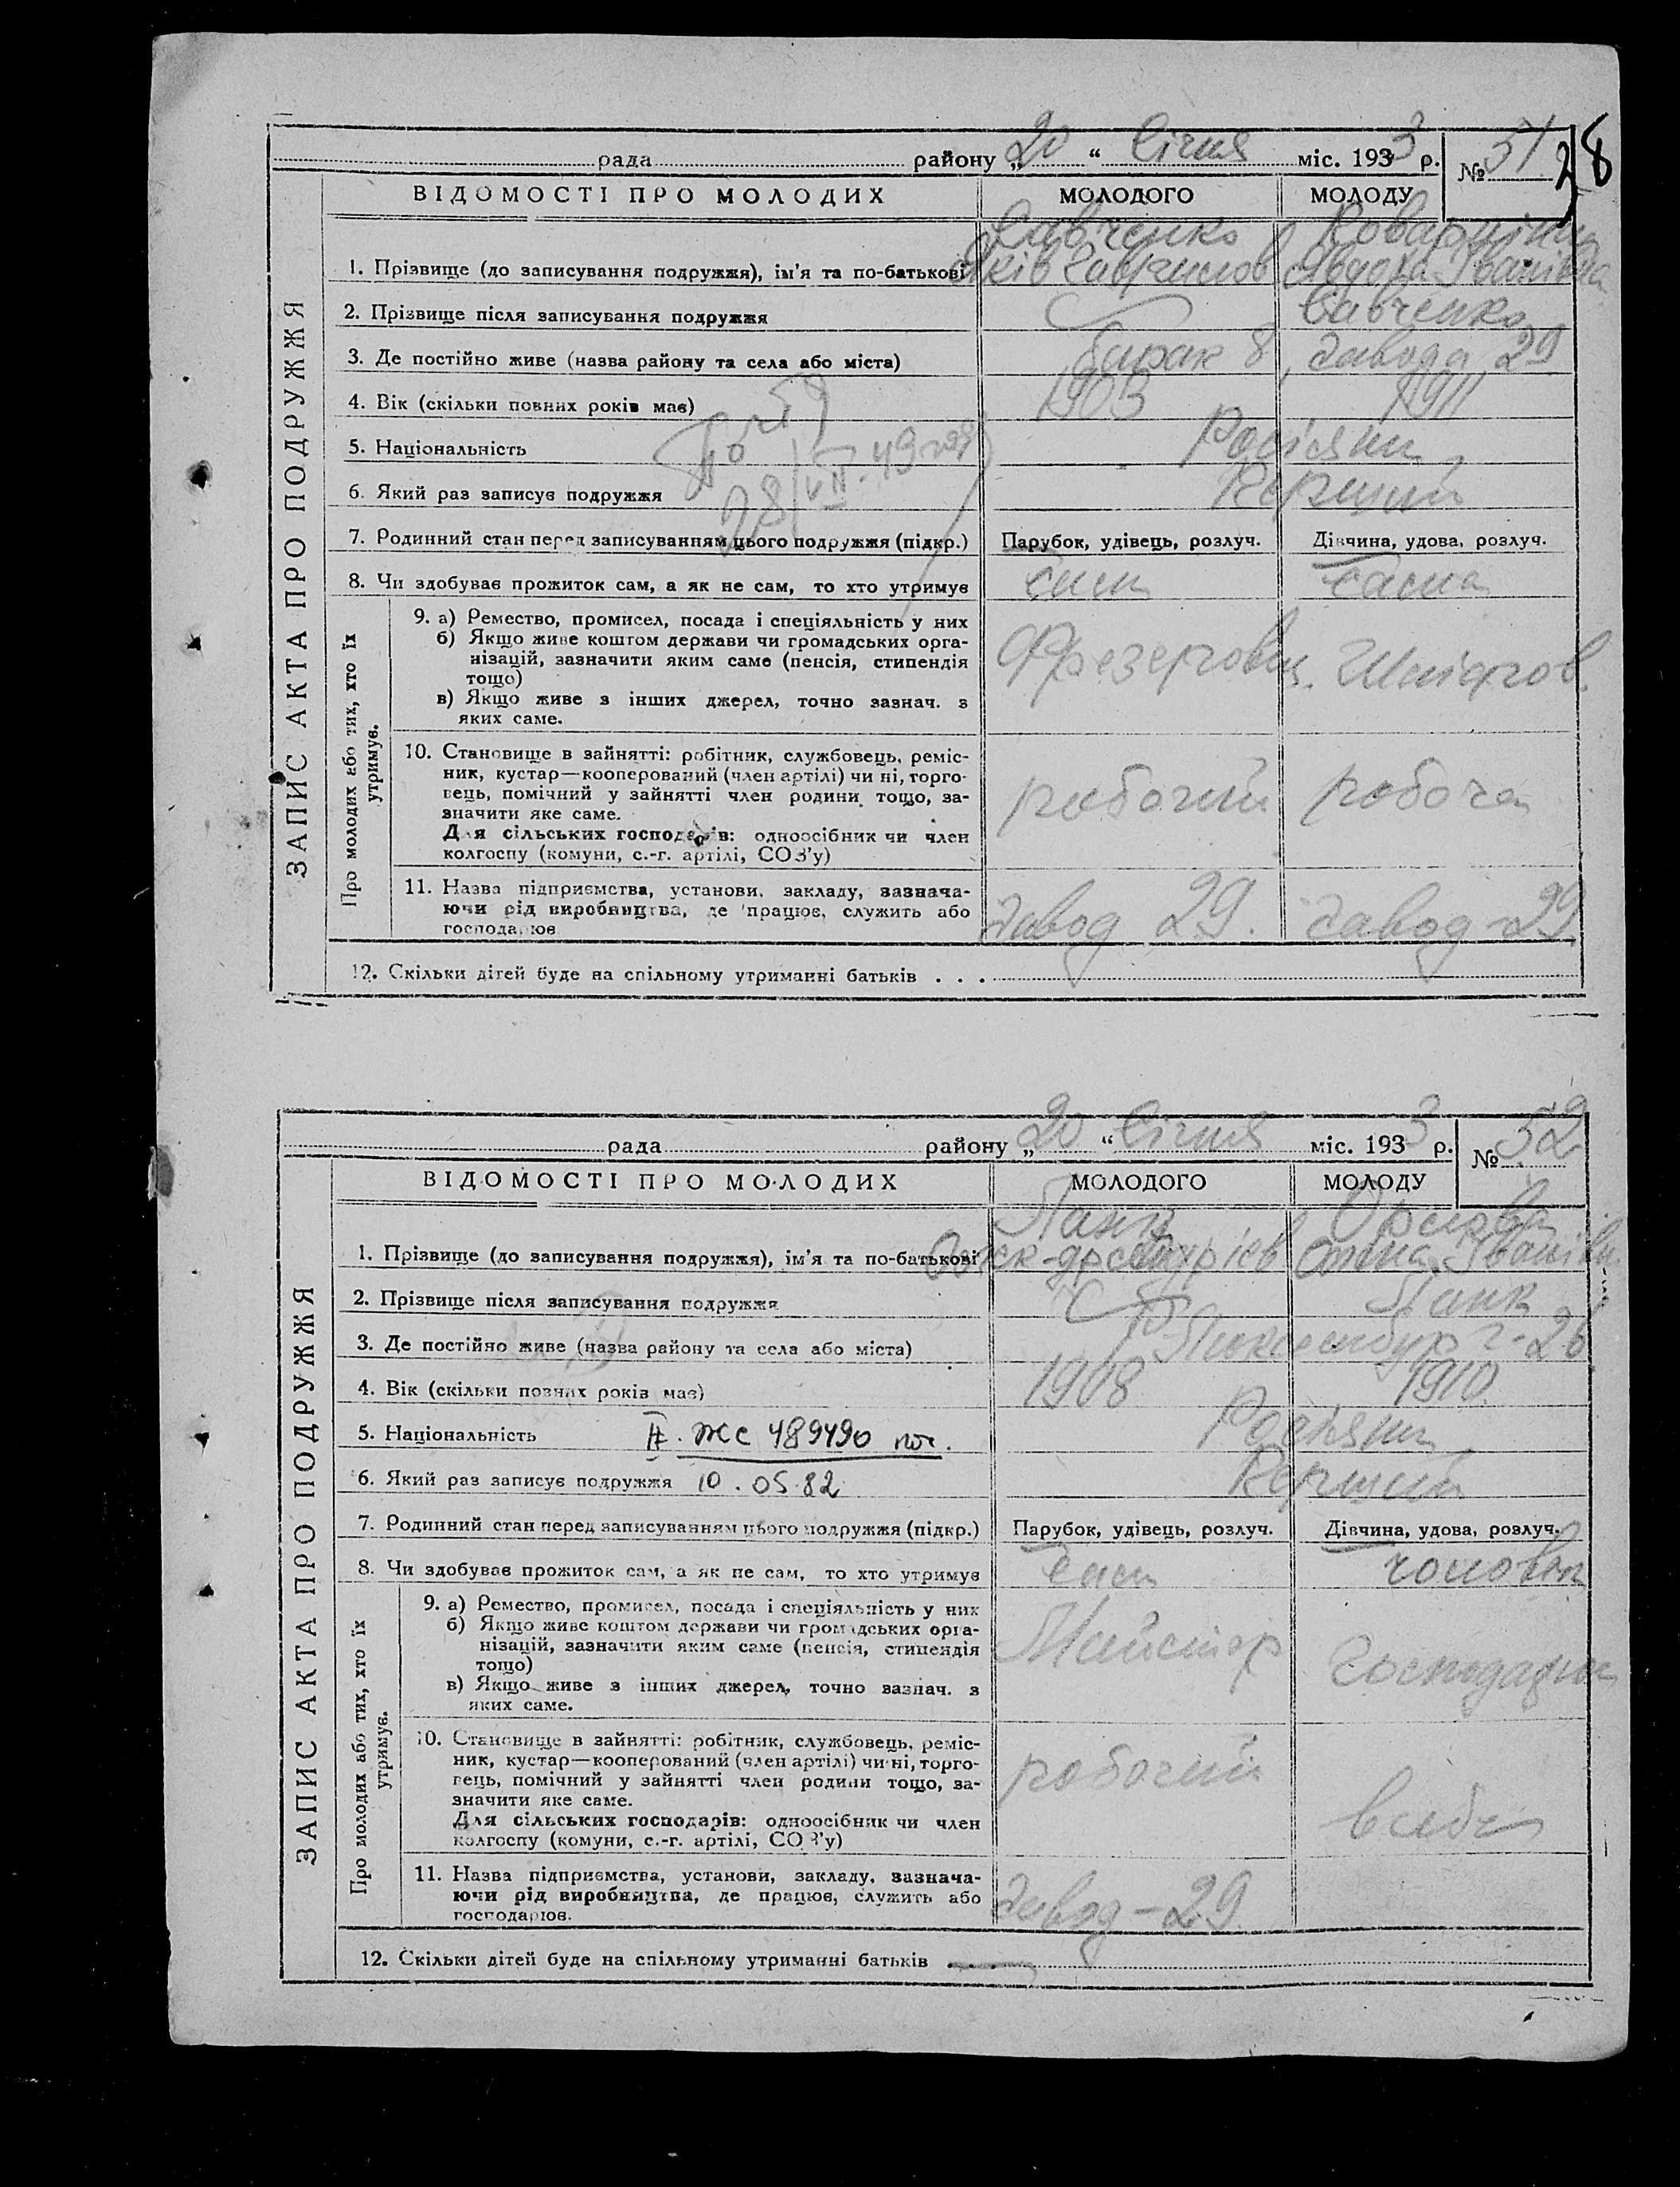 28
рада району „20“ Січня міс. 1933 р. № 51
ВІДОМОСТІ ПРО МОЛОДИХ МОЛОДОГО МОЛОДУ
ЗАПИС АКТА ПРО ПОДРУЖЖЯ
Савченко
1. Прізвище (до записування подружжя), ім'я та по-батькові Яків Гаврилов Явдоха Іванівна
2. Прізвище після записування подружжя Савченко
3. Де постійно живе (назва району та села або міста) барак 8, завода 29
4. Вік (скільки повних років має) 1903 1911
5. Національність Росіяни
6. Який раз записує подружжя Перший
28/VII.49
7. Родинний стан перед записуванням цього подружжя (підкр.) Парубок, удівець, розлуч. Дівчина, удова, розлуч.
8. Чи здобуває прожиток сам, а як не сам, то хто утримує сам сама
Про молодих або тих, хто їх утримує.
9. а) Ремество, промисел, посада і спеціяльність у них
б) Якщо живе коштом держави чи громадських орга-
нізацій, зазначити яким саме (пенсія, стипендія
тощо)
Фрезеровщ.
в) Якщо живе з інших джерел, точно зазнач. з
яких саме.
10. Становище в зайнятті: робітник, службовець, реміс-
ник, кустар—кооперований (член артілі) чи ні, торго-
вець, помічний у зайнятті член родини тощо, за-
значити яке саме.
робочий робоча
Для сільських господарів: одноосібник чи член
колгоспу (комуни, с.-г. артілі, СОЗ'у)
11. Назва підприємства, установи, закладу, зазнача-
ючи рід виробництва, де працює, служить або
господарює
завод 29. завод-29.
12. Скільки дітей буде на спільному утриманні батьків . . .
рада району „20“ Січня міс. 1933 р. № 52
ВІДОМОСТІ ПРО МОЛОДИХ МОЛОДОГО МОЛОДУ
ЗАПИС АКТА ПРО ПОДРУЖЖЯ
Панк Орлова
1. Прізвище (до записування подружжя), ім'я та по-батькові Іванівн.
2. Прізвище після записування подружжя Панк
3. Де постійно живе (назва району та села або міста) Р. Люксембург-26
4. Вік (скільки повних років має) 1908 1910
5. Національність II. ЖС 489490 пов. Росіяни
6. Який раз записує подружжя 10.05.82 Перший
7. Родинний стан перед записуванням цього подружжя (підкр.) Парубок, удівець, розлуч. Дівчина, удова, розлуч.
8. Чи здобуває прожиток сам, а як не сам, то хто утримує сам чоловік
Про молодих або тих, хто їх утримує.
9. а) Ремество, промисел, посада і спеціяльність у них
б) Якщо живе коштом держави чи громадських орга-
нізацій, зазначити яким саме (пенсія, стипендія
тощо)
Майстер
в) Якщо живе з інших джерел, точно зазнач. з
яких саме.
10. Становище в зайнятті: робітник, службовець, реміс-
ник, кустар—кооперований (член артілі) чи ні, торго-
вець, помічний у зайнятті член родини тощо, за-
значити яке саме.
робочий
Для сільських господарів: одноосібник чи член
колгоспу (комуни, с.-г. артілі, СОЗ'у)
11. Назва підприємства, установи, закладу, зазнача-
ючи рід виробництва, де працює, служить або
господарює.
завод-29
12. Скільки дітей буде на спільному утриманні батьків